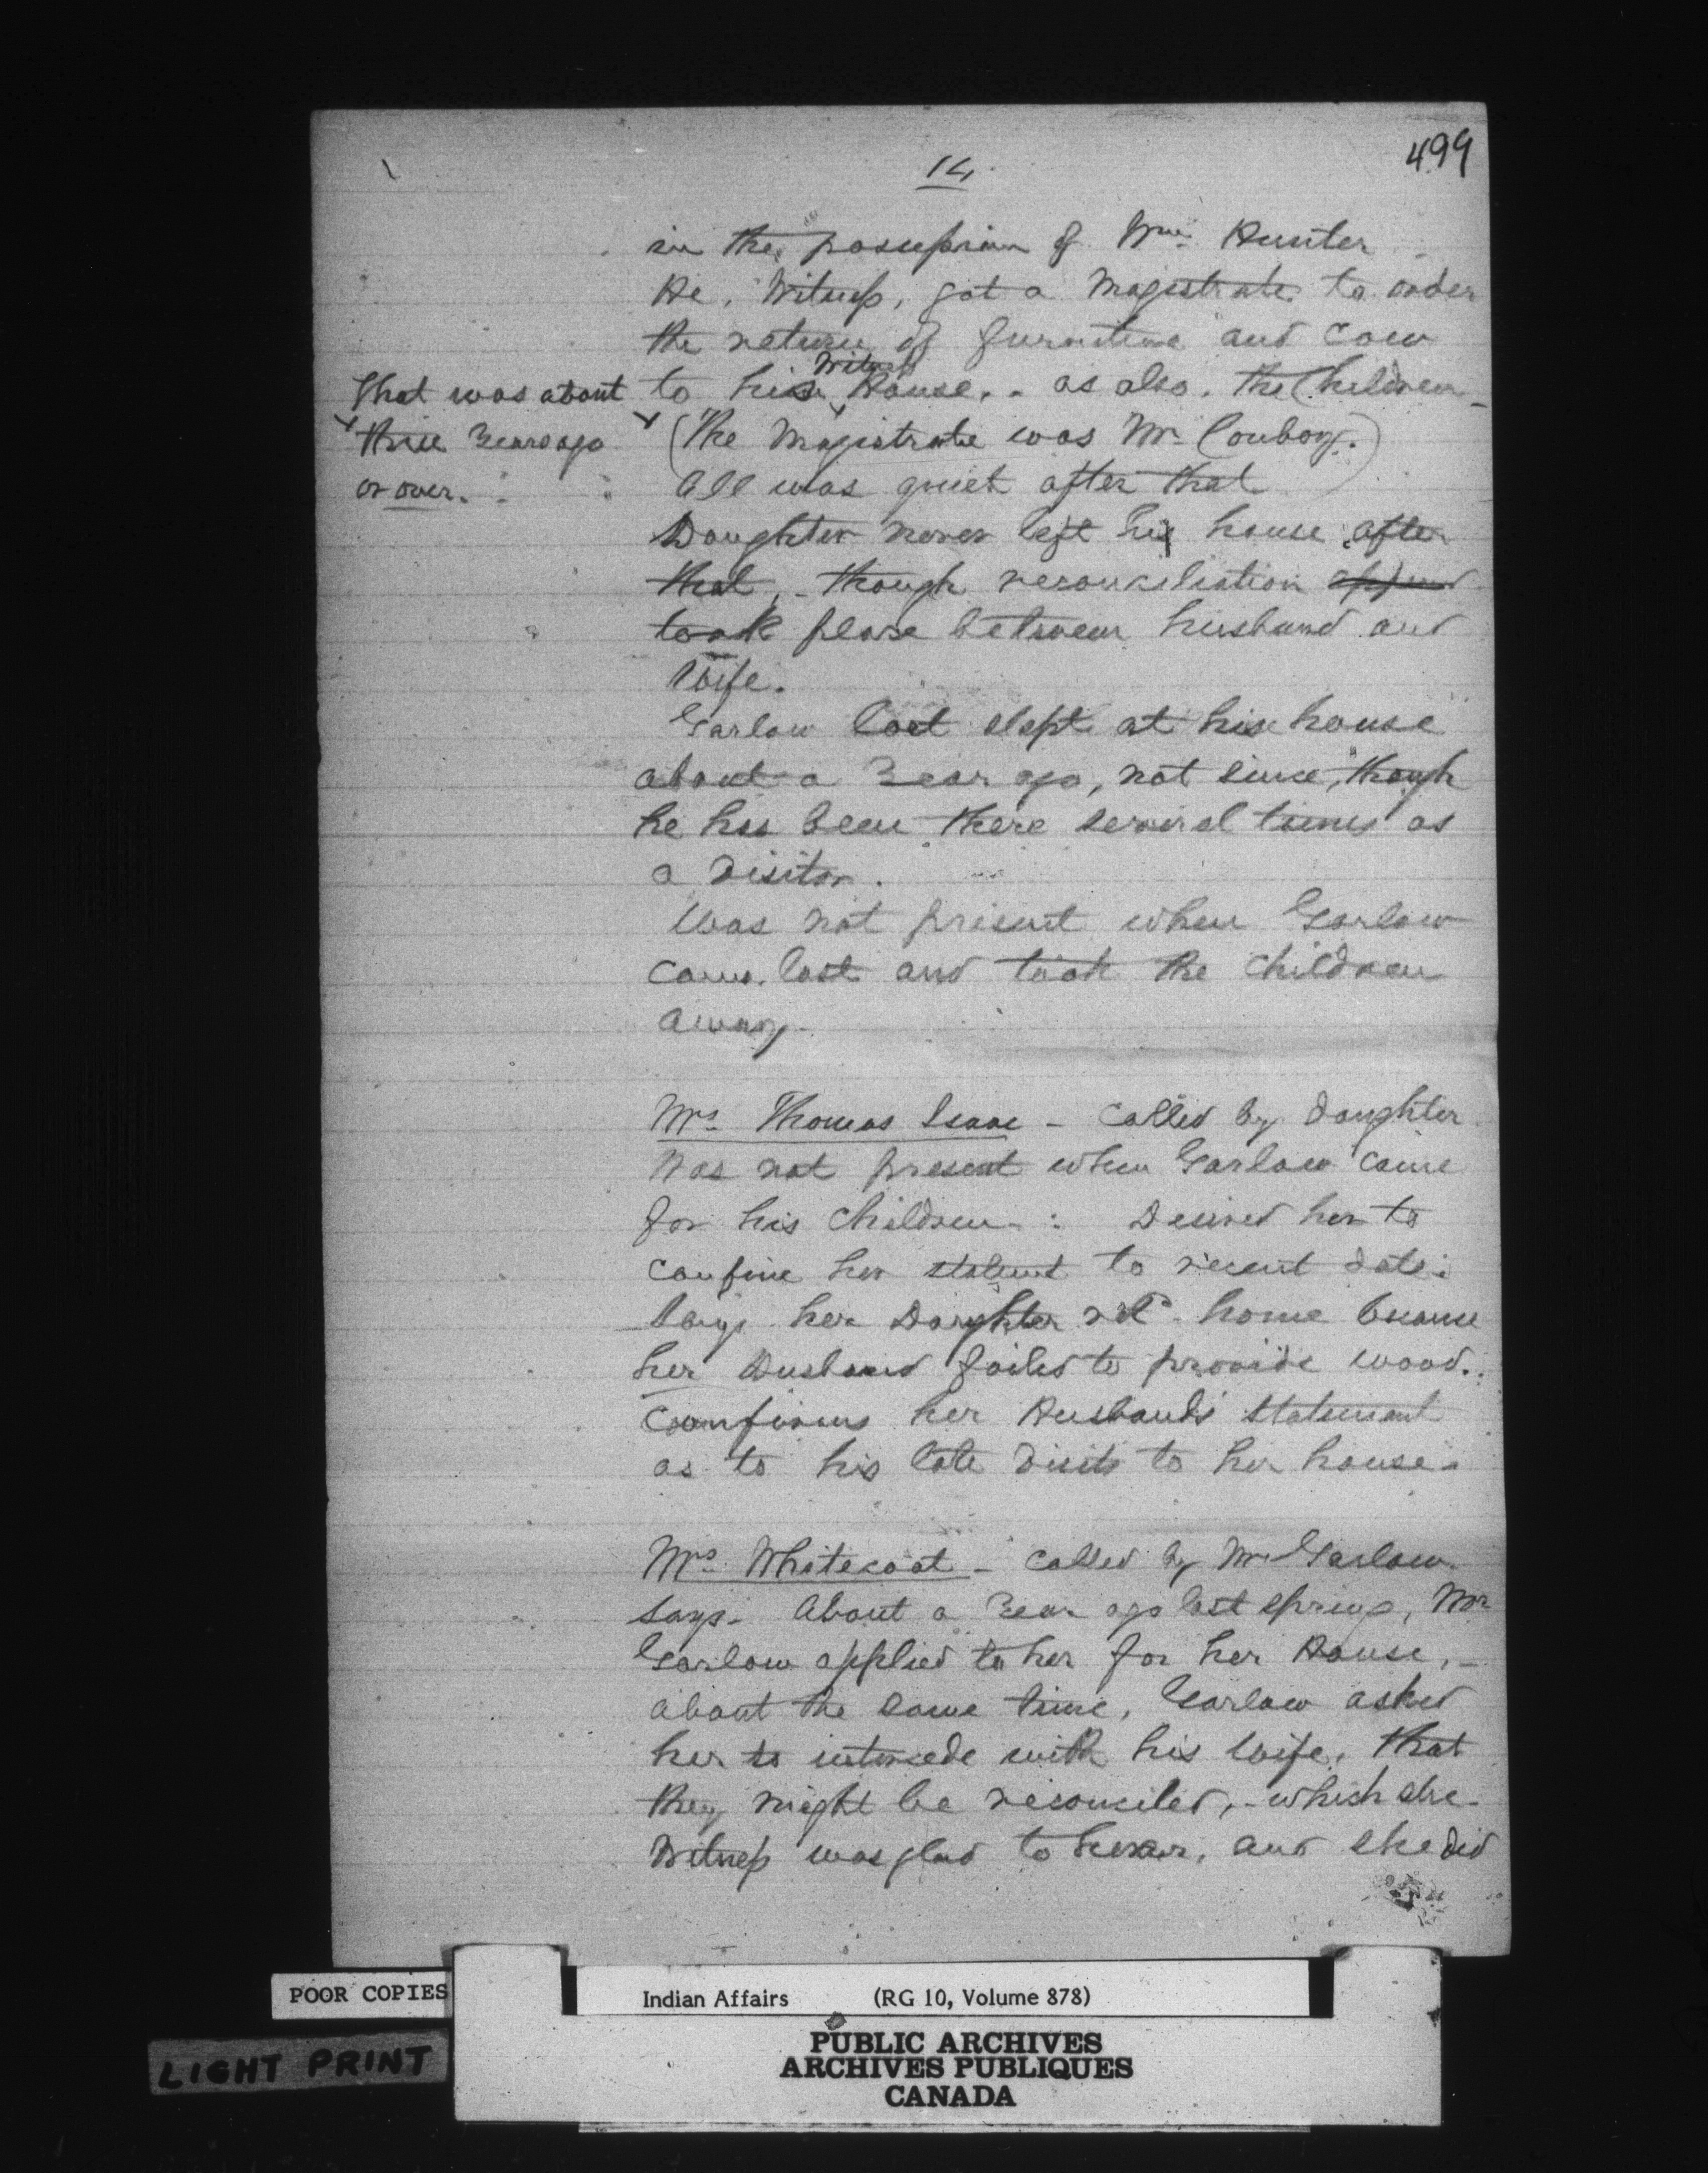 499
14
in the possession of Wm Hunter
He, Witness, got a Magistrate to order
the return of furniture and Cow
Witness
to his House. - as also. the Children -
That was about
three Years ago
or over.
(The Magistrate was Mr Conboy.)
All was quiet after that
Daughter never left his house after
that, - though reconciliation
took place between husband and
Wife.
Garlow last slept at his house
about a Year ago, not since, though
he has been there several times as
a visitor.
Was not present when Garlow
came last and took the children
away.
Mrs Thomas Isaac - Called by Daughter
Was not present when Garlow came
for his Children - : Desired her to
confine her statement to recent date.
Says her Daughter retd home because
her Husband failed to provide wood.
Confirms her Husband's statement
as to his late visits to her house.
Mrs Whitecoat - Called by Mr Garlow.
Says - About a Year ago last spring, Mr
Garlow applied to her for her House, -
about the same time, Garlow asked
her to intercede with his Wife, that
they might be reconciled, - which she
Witness was glad to hear, and she did
POOR COPIES
LIGHT PRINT
Indian Affairs (RG 10, Volume 878)
PUBLIC ARCHIVES
ARCHIVES PUBLIQUES
CANADA